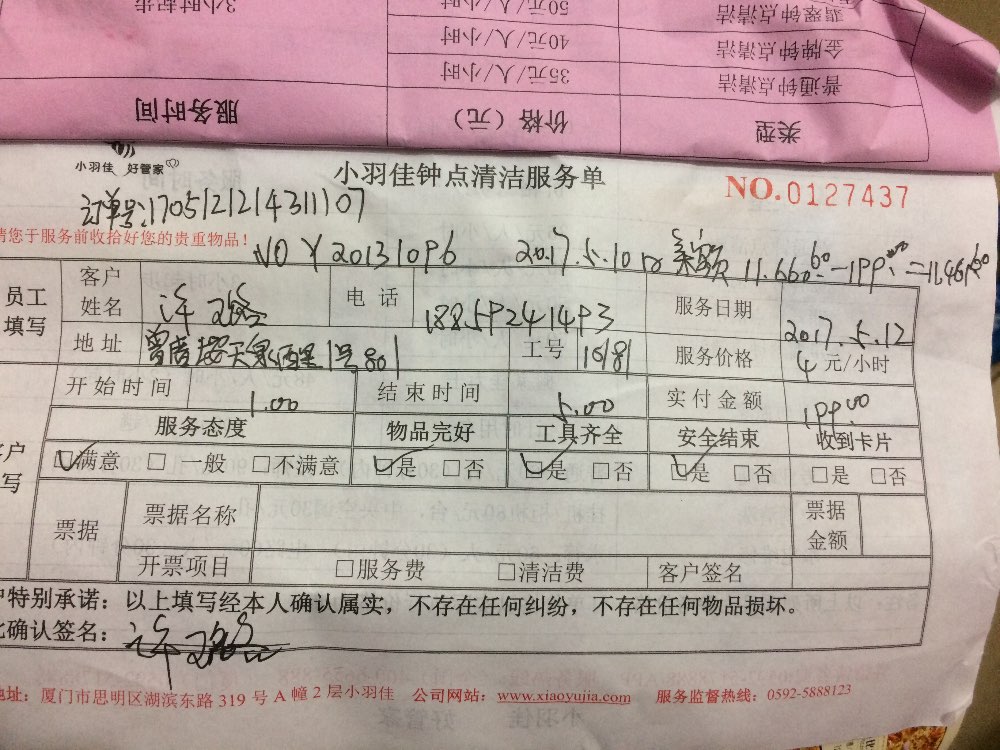 3小时起步
50元/人/小时
翡翠钟点清洁
40元/人/小时
金牌钟点清洁
35元/人/小时
普通钟点清洁
服务时间
价格（元）
类型
小羽佳 好管家
小羽佳钟点清洁服务单
NO.0127437
订单号:17051212143111107
请您于服务前收拾好您的贵重物品！
NO Y20131096 2017.5.10
员工填写
客户姓名 许
电话 18859241493
服务日期 2017.5.12
地址 1号801
工号
服务价格 4元/小时
开始时间 1.00
结束时间 5.00
实付金额 199.00
服务态度 物品完好 工具齐全 安全结束 收到卡片
☑满意 □一般 □不满意 ☑是 □否 ☑是 □否 ☑是 □否 □是 □否
票据 票据名称 票据金额
开票项目 □服务费 □清洁费 客户签名
户特别承诺：以上填写经本人确认属实，不存在任何纠纷，不存在任何物品损坏。
此确认签名： 许
地址：厦门市思明区湖滨东路 319 号 A 幢 2 层小羽佳 公司网站：www.xiaoyujia.com 服务监督热线：0592-5888123